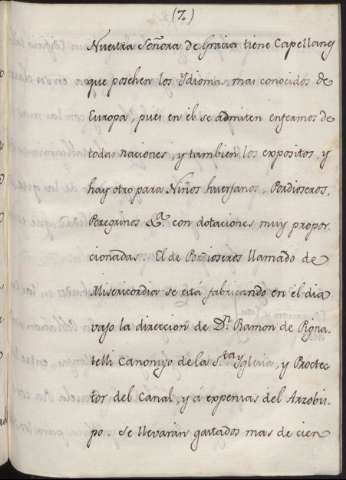 (7.)
Nuestra Señora de Gracia tiene Capellang
que posehen los Ydiomas mas conocidos de
Europa, pues en èl se admiten enfermos de
todas naciones, y tambien los expositos, y
hay otro para Niños huerfanos, Pordioseros,
Peregrinos &ª con dotaciones muy propor
cionadas. El de Pordioseros llamado de
Misericordia se està fabricando en el dia
vajo la direccion de Dn. Ramon de Pigna
telli Canonigo de la Sta. Yglesia, y Protec
tor del Canal, y à expensas del Arzobis
po. Se llevaràn gastados mas de cien